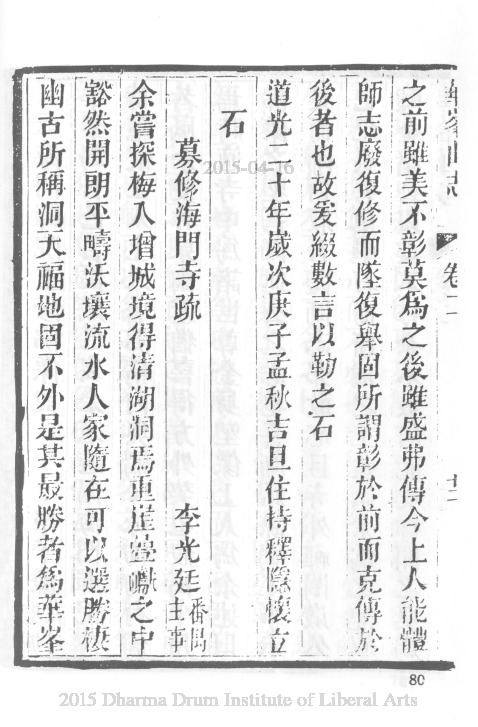 華峯山志
卷二
十二
之前雖美不彰莫爲之後雖盛弗傳今上人能體
師志廢復修而墜復舉固所謂彰於前而克傳於
後者也故爰綴數言以勒之石
道光二十年歲次庚子孟秋吉旦住持釋隱懷立
石
募修海門寺疏
李光廷 番禺主事
余嘗探梅入增城境得清湖洞焉重崖疊巘之中
豁然開朗平疇沃壤流水人家隨在可以選勝棲
幽古所稱洞天福地固不外是其最勝者爲華峯
2015-04-16
80
2015 Dharma Drum Institute of Liberal Arts